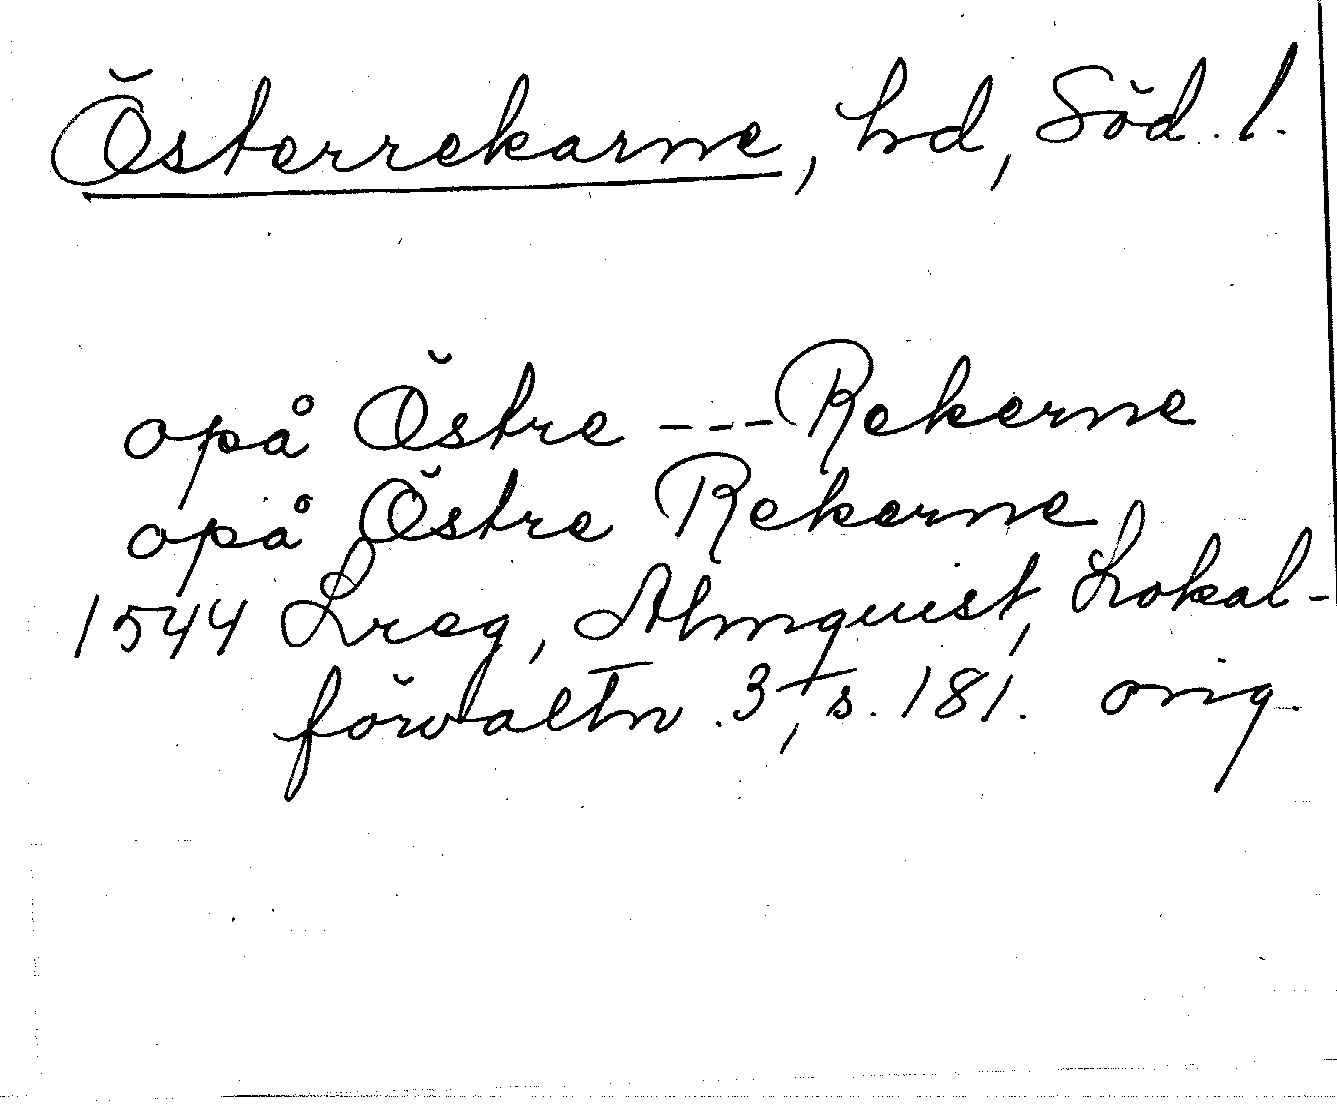 Österrekarne, hd, Söd. l.
opå Östre --- Rekerne
opå Östre Rekerne
1544 Lreg, Almquist, Lokal-
förvaltn. 3, s. 181. orig.